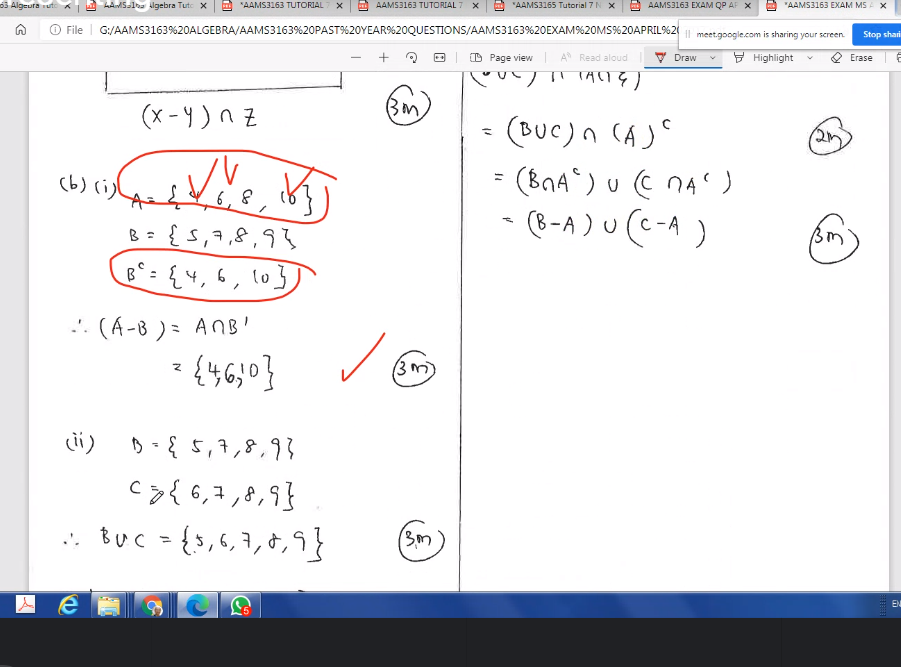 AAMS3163 TUTORIAL
AAMS3163 TUTORIAL 7
*AAMS3165 Tutorial 7 N
AAMS3163 EXAM QP AP
*AAMS3163 EXAM MS A
File G:/AAMS3163%20ALGEBRA/AAMS3163%20PAST%20YEAR%20QUESTIONS/AAMS3163%20EXAM%20MS%20APRIL%20
meet.google.com is sharing your screen. Stop shari
Page view Read aloud Draw Highlight Erase
(X-Y) ∩ Z
3m
(b) (i) A = { 4, 6, 8, 10}
B = { 5, 7, 8, 9}
Bᶜ = { 4, 6, 10}
∴ (A-B) = A∩B'
= {4,6,10}
3m
(ii) B = { 5, 7, 8, 9}
C = { 6, 7, 8, 9}
∴ B∪C = {5, 6, 7, 8, 9}
3m
= (B∪C) ∩ (A)ᶜ
2m
= (B∩Aᶜ) ∪ (C ∩Aᶜ)
= (B-A) ∪ (C-A)
3m
5
EN